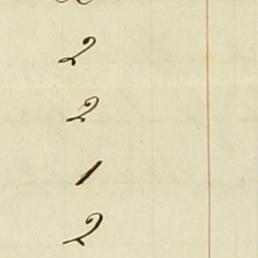 2
2
1
2